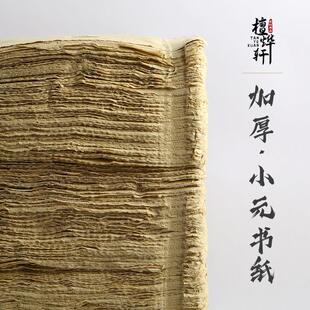 檀烨轩
TAN
YE
XUAN
加厚·小元书纸